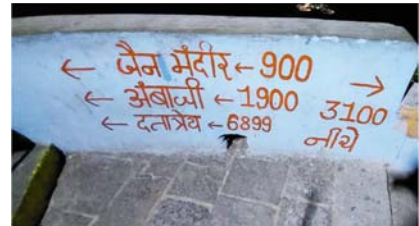 ← जैन मंदीर ← 900
← अंबाजी ← 1900
← दतात्रेय ← 6899
→
3100
नीचे